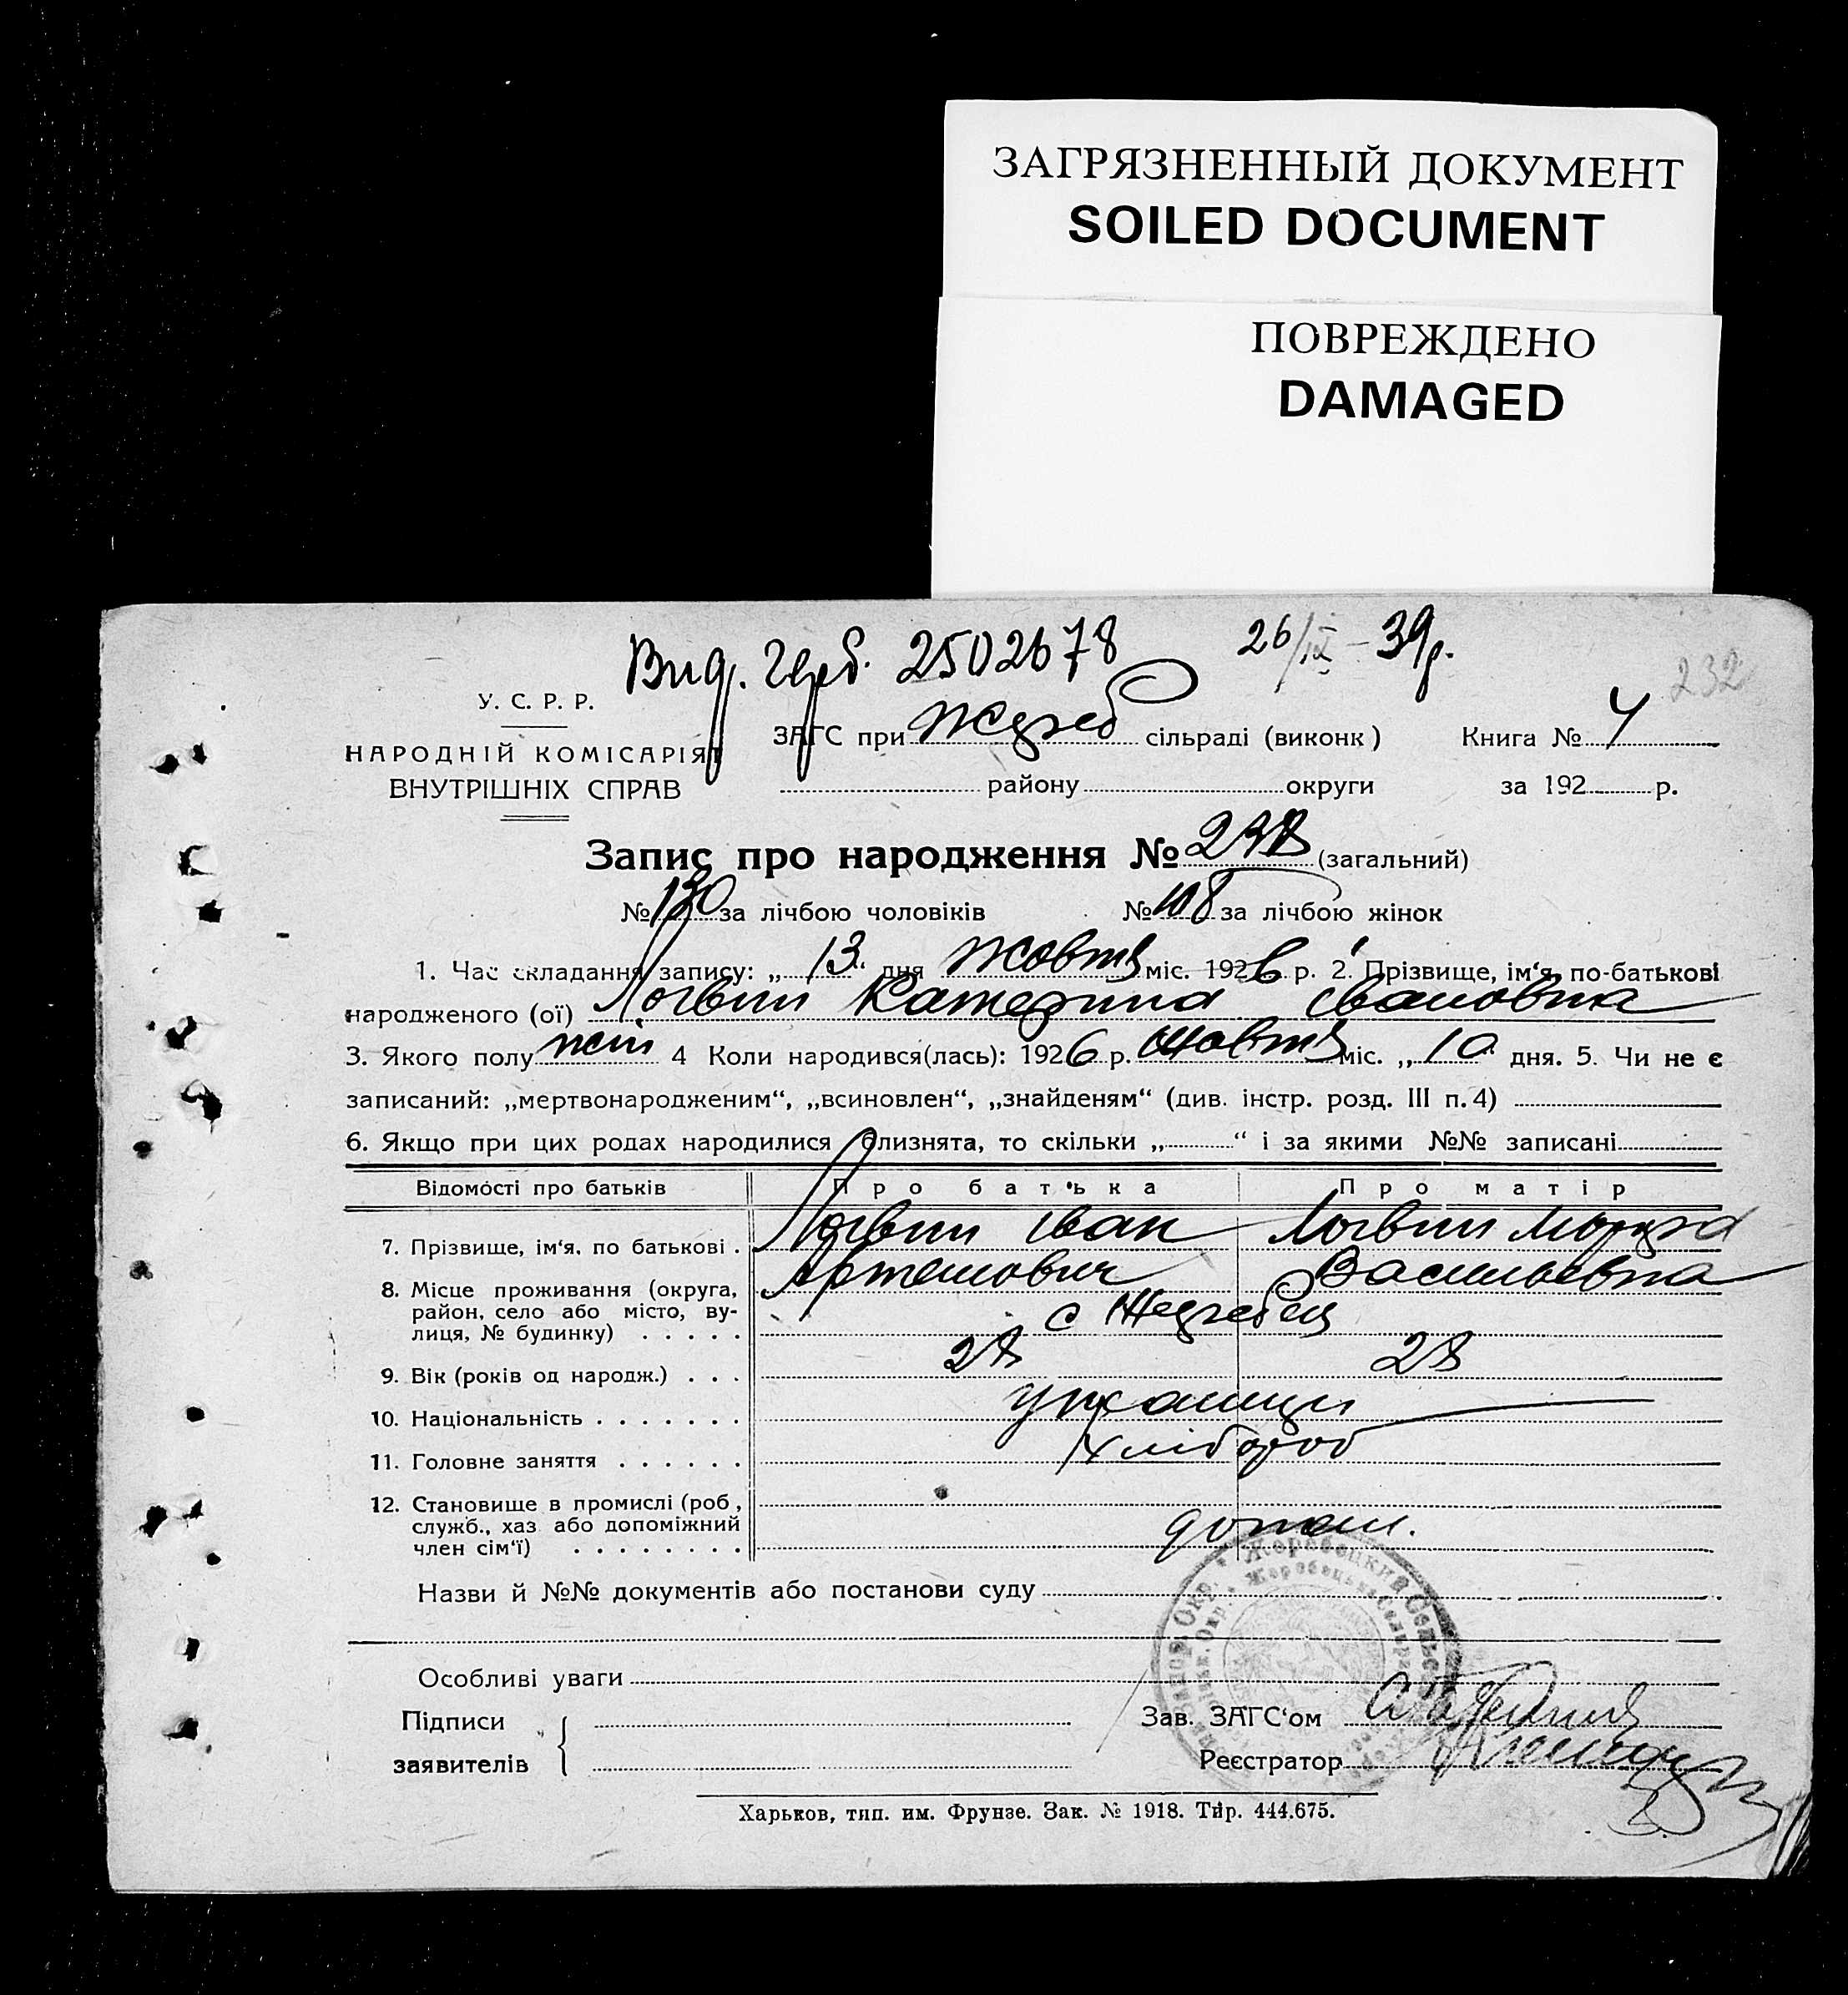 ЗАГРЯЗНЕННЫЙ ДОКУМЕНТ
SOILED DOCUMENT
ПОВРЕЖДЕНО
DAMAGED
Вид. герб. 2502678 26/IX – 39р.
232
У. С. Р. Р.
НАРОДНІЙ КОМІСАРІЯТ
ВНУТРІШНІХ СПРАВ
ЗАГС при Жереб сільраді (виконк) Книга № 4
району округи за 192 р.
Запис про народження № 238 (загальний)
№ 130 за лічбою чоловіків № 108 за лічбою жінок
1. Час складання запису: „ 13 “ дня Жовтня міс. 1926 р. 2. Прізвище, ім‘я, по-батькові
народженого (ої) Логвин Катерина Івановна
3. Якого полу жін 4 Коли народився(лась): 1926 р. Жовтня міс. „ 10 “ дня. 5. Чи не є
записаний: „мертвонародженим“, „всиновлен“, „знайденям“ (див. інстр. розд. III п. 4)
6. Якщо при цих родах народилися близнята, то скільки „ “ і за якими №№ записані
Відомості про батьків Про батька Про матір
7. Прізвище, ім‘я, по батькові . Логвин Іван Логвин
Артемович Васильевна
8. Місце проживання (округа,
район, село або місто, ву-
лиця, № будинку) . . . . . с Жеребец
9. Вік (років од народж.) . . . 28 28
10. Національність . . . . . . . українци
11. Головне заняття . . . . . . хлібороб
12. Становище в промислі (роб,
служб., хаз. або допоміжний
член сім‘ї) . . . . . . . . допом.
Назви й №№ документів або постанови суду
Жеребецкий Сельс
Особливі уваги
Підписи
заявителів
Зав. ЗАГС‘ом
Реєстратор
Харьков, тип. им. Фрунзе. Зак. № 1918. Тир. 444.675.